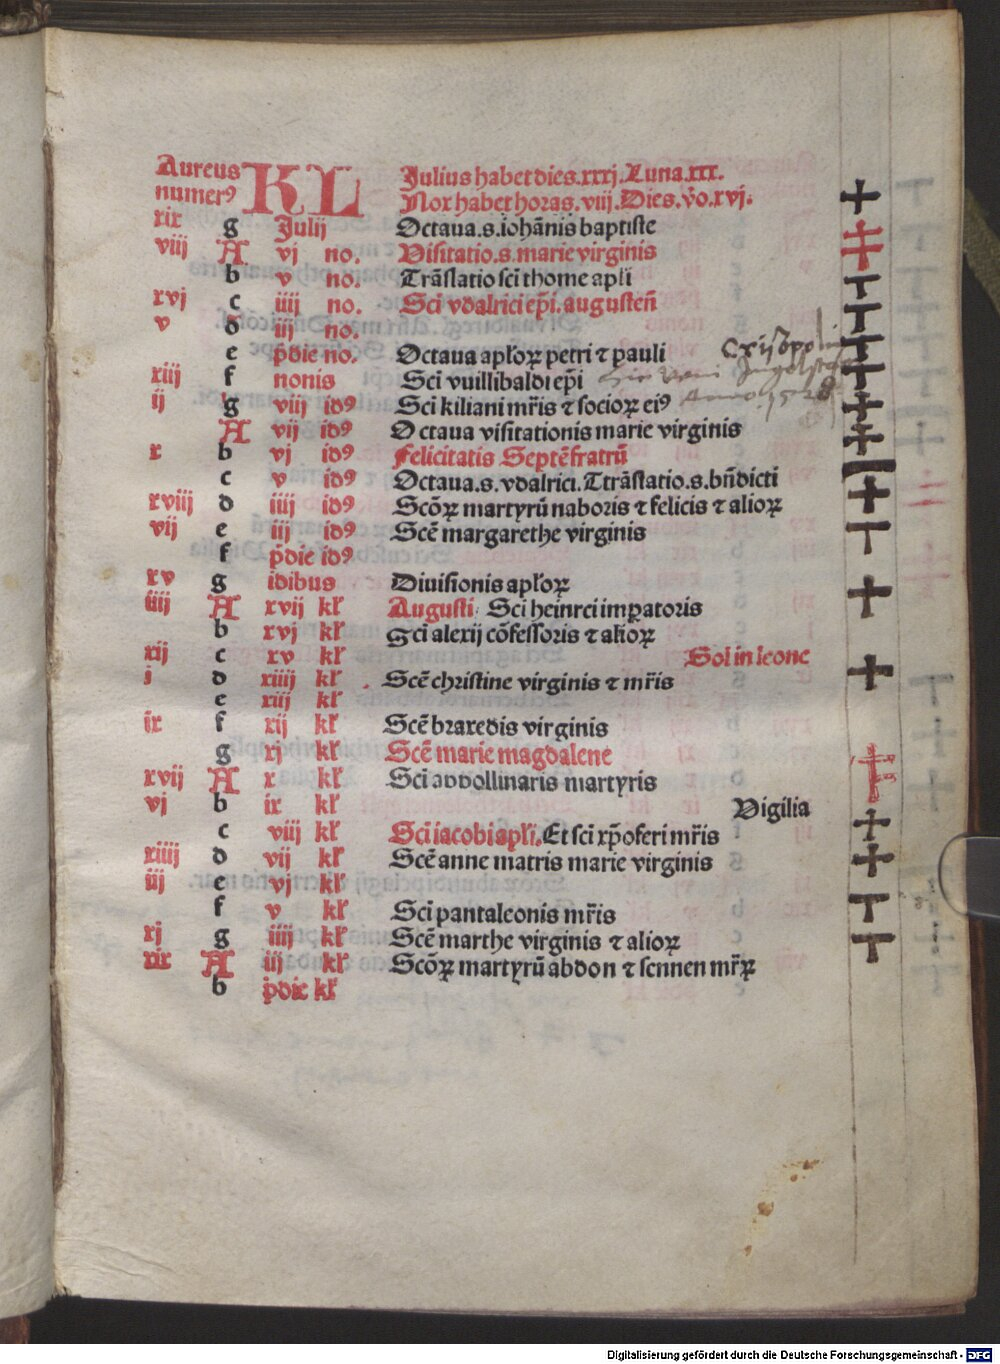 Aureus KL Julius habet dies.xxxj.Luna.xxx.
numerꝰ Nox habet horas.viij.Dies.v̄o.xvj.
xix g Julij Octaua.s.iohānis baptiste
viij A vj no. Visitatio.s.marie virginis
b v no. Trāslatio sci thome apli
xvj c iiij no. Sci vdalrici ep̄i.augusteñ
v d iij no.
e p̄die no. Octaua aploꝝ petri ⁊ pauli
xiij f nonis Sci vuillibaldi ep̄i
ij g viij idꝰ Sci kiliani mr̄is ⁊ socioꝝ eiꝰ
A vij idꝰ Octaua visitationis marie virginis
x b vj idꝰ Felicitatis Septē fratrū
c v idꝰ Octaua.s.vdalrici.Ttrāslatio.s.bn̄dicti
xviij d iiij idꝰ Scōꝝ martyrū naboris ⁊ felicis ⁊ alioꝝ
vij e iij idꝰ Scē margarethe virginis
f p̄die idꝰ
xv g idibus Diuisionis aploꝝ
iiij A xvij kl Augusti Sci heinrci imꝑatoris
b xvj kl Sci alexij cōfessoris ⁊ alioꝝ
xij c xv kl Sol in leone
j d xiiij kl Scē christine virginis ⁊ mr̄is
e xiij kl
ix f xij kl Scē braxedis virginis
g xj kl Scē marie magdalene
xvij A x kl Sci abdollinaris martyris
vj b ix kl Vigilia
c viij kl Sci iacobi apli.Et sci xp̄oferi mr̄is
xiiij d vij kl Scē anne matris marie virginis
iij e vj kl
f v kl Sci pantaleonis mr̄is
xj g iiij kl Scē marthe virginis ⁊ alioꝝ
xix A iij kl Scōꝝ martyrū abdon ⁊ sennen mr̄ꝝ
b p̄die kl
Anno 1528
Digitalisierung gefördert durch die Deutsche Forschungsgemeinschaft - DFG